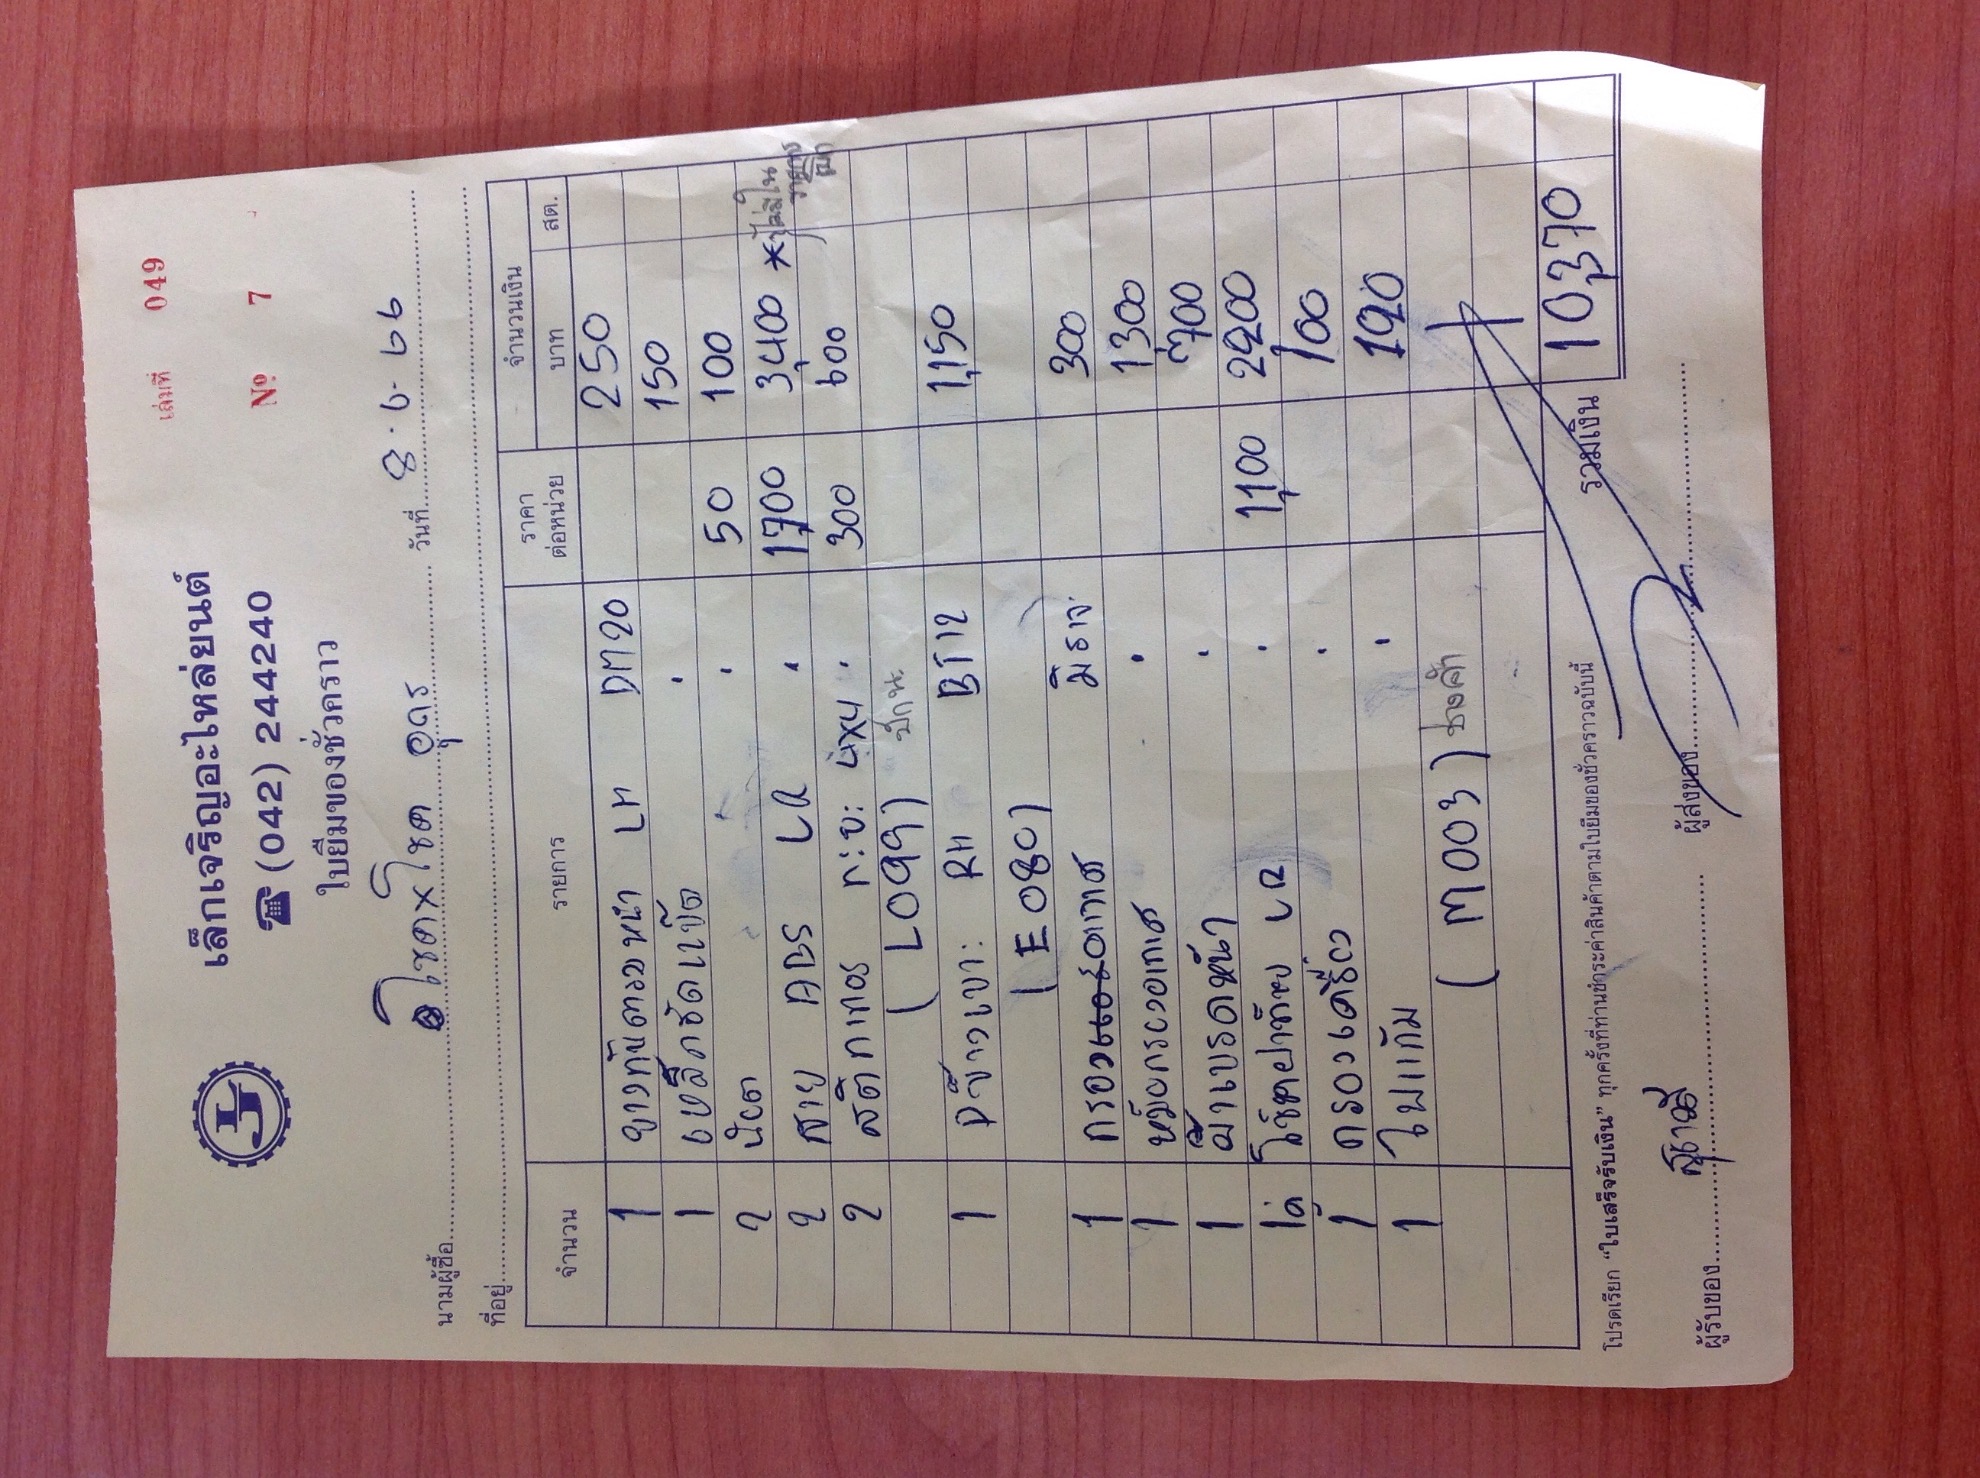 เล่มที่ 049
เล็กเจริญอะไหล่ยนต์
☎ (042) 244240
Nº 7
ใบยืมของชั่วคราว
นามผู้ซื้อ โชคxโชค อุดร วันที่ 8.6.66
ที่อยู่
จำนวน รายการ ราคาต่อหน่วย จำนวนเงิน
บาท สต.
1 ยางทับตรวงหน้า LH DM20 250
1 เหล็กรัดแป๊ด " 150
2 น๊อต " 50 100
2 สาย ABS LR " 1,700 3,400 * ไม่มีใน
2 สติกเกอร์ ก:บ: 4x4 " 300 600
(L099) ปีกนก
1 คิ้วขาวเบา: RH BT12 1,150
(E080)
1 กรองอากาศ มิราจ 300
1 หม้อกรองอากาศ " 1,300
1 ผ้าเบรคหน้า " 700
1คู่ โช๊คฝาท้าย LR " 1,100 2,200
1 กรองเครื่อง " 100
1 ใบแก้ม " 120
(M003) ช่างคำ
รวมเงิน 10,370
โปรดเรียก "ใบเสร็จรับเงิน" ทุกครั้งที่ท่านชำระค่าสินค้าตามใบยืมของชั่วคราวฉบับนี้
ผู้รับของ ผู้ส่งของ